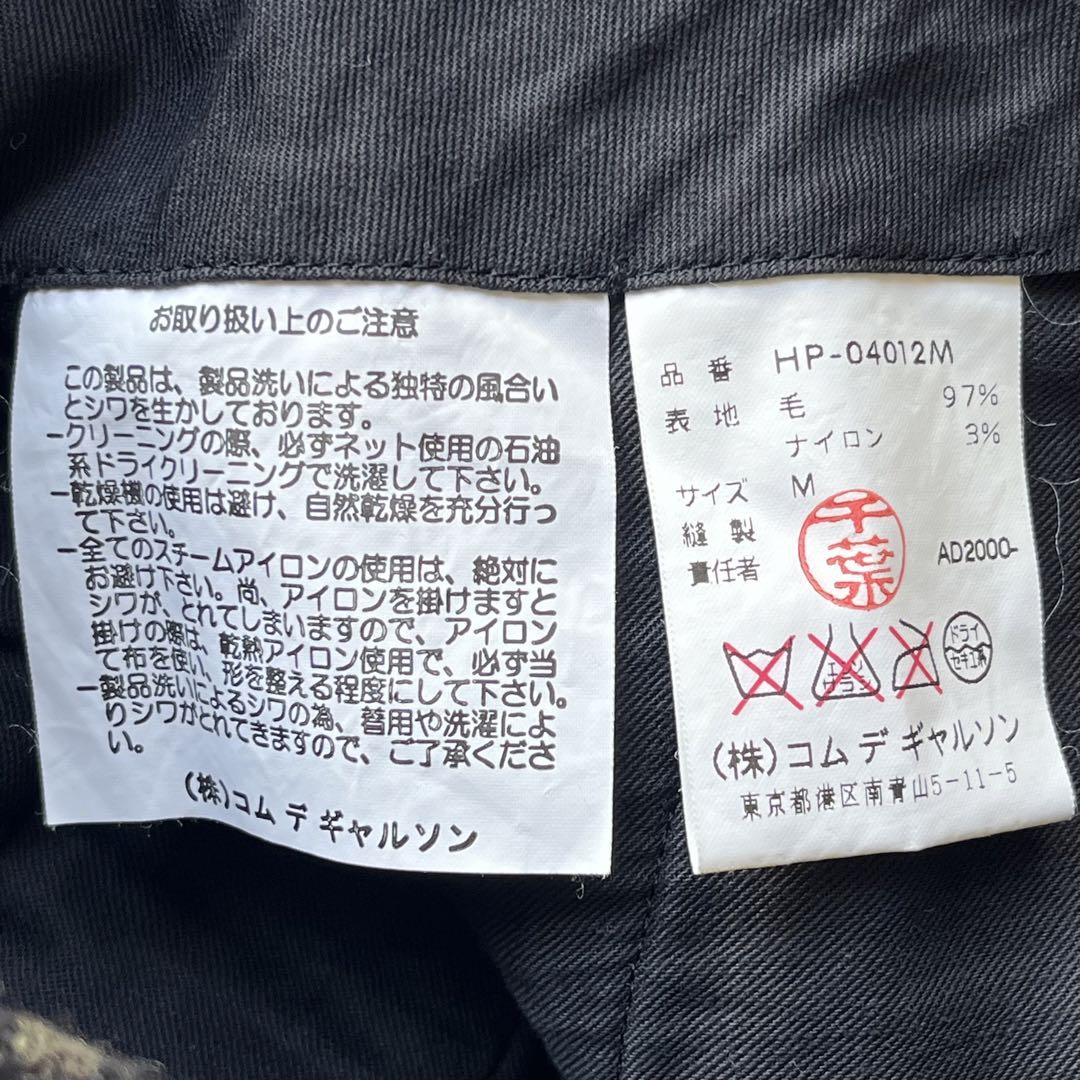 お取り扱い上のご注意
この製品は、製品洗いによる独特の風合い
とシワを生かしております。
－クリーニングの際、必ずネット使用の石油
系ドライクリーニングで洗濯して下さい。
－乾燥機の使用は避け、自然乾燥を充分行っ
て下さい。
－全てのスチームアイロンの使用は、絶対に
お避け下さい。尚、アイロンを掛けますと
シワが、とれてしまいますので、アイロン
掛けの際は、乾熱アイロン使用で、必ず当
て布を使い、形を整える程度にして下さい。
－製品洗いによるシワの為、着用や洗濯によ
りシワがとれてきますので、ご了承くださ
い。
(株)コム デ ギャルソン
品番 HP-04012M
表地 毛 97%
ナイロン 3%
サイズ M
縫製
責任者
千葉
AD2000-
エンソ
サラシ
ドライ
セキユ系
(株)コム デ ギャルソン
東京都港区南青山5-11-5